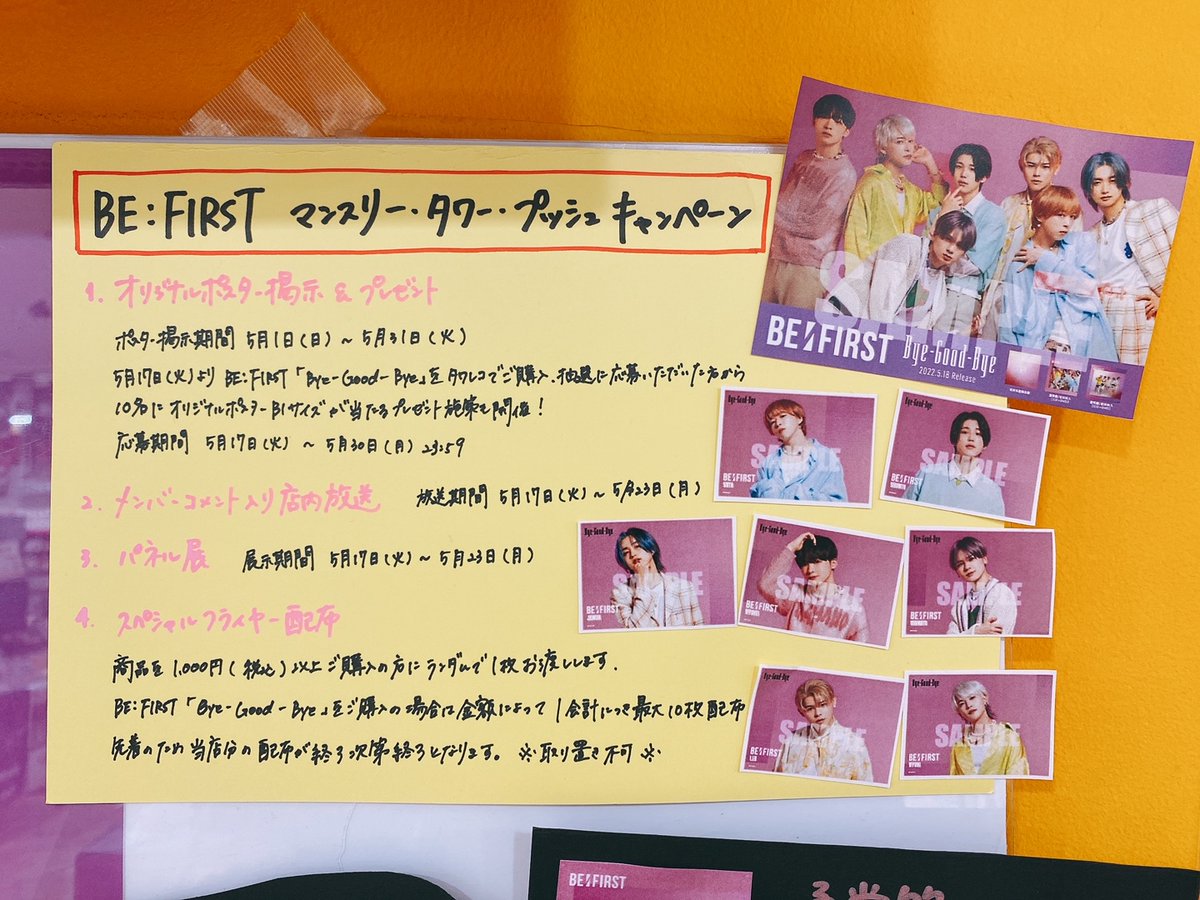 BE:FIRST マンスリー・タワー・プッシュキャンペーン
1. オリジナルポスター掲示 & プレゼント
ポスター掲示期間 5月1日(日)~5月31日(火)
5月17日(火)より BE:FIRST「Bye-Good-Bye」をタワレコでご購入、抽選に応募いただいた方から
10名にオリジナルポスターB1サイズが当たるプレゼント施策も開催!
応募期間 5月17日(火) ~ 5月30日(月) 23:59
2. メンバーコメント入り店内放送 放送期間 5月17日(火)~5月23日(月)
3. パネル展 展示期間 5月17日(火)~5月23日(月)
4. スペシャルフライヤー配布
商品を1,000円(税込)以上ご購入の方にランダムで1枚お渡しします.
BE:FIRST「Bye-Good-Bye」をご購入の場合は金額によって1会計につき最大10枚配布
先着のため当店分の配布が終了次第終了となります。 ※取り置き不可※
SAMPLE
BE:FIRST Bye-Good-Bye
2022.5.18 Release
Bye-Good-Bye
SAMPLE
BE:FIRST
SOTA
Bye-Good-Bye
SAMPLE
BE:FIRST
SHUNTO
Bye-Good-Bye
SAMPLE
BE:FIRST
JUNON
Bye-Good-Bye
SAMPLE
BE:FIRST
RYUHEI
Bye-Good-Bye
SAMPLE
BE:FIRST
MANATO
Bye-Good-Bye
SAMPLE
BE:FIRST
LEO
Bye-Good-Bye
SAMPLE
BE:FIRST
RYOKI
BE:FIRST